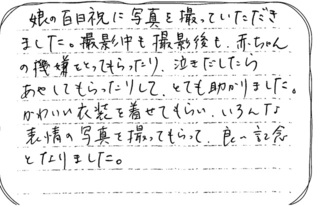 娘の百日祝に写真を撮っていただき
ました。撮影中も撮影後も、赤ちゃん
の機嫌をとってもらったり、泣きだしたら
あやしてもらったりして、とても助かりました。
かわいい衣装を着せてもらい、いろんな
表情の写真を撮ってもらって、良い記念
となりました。